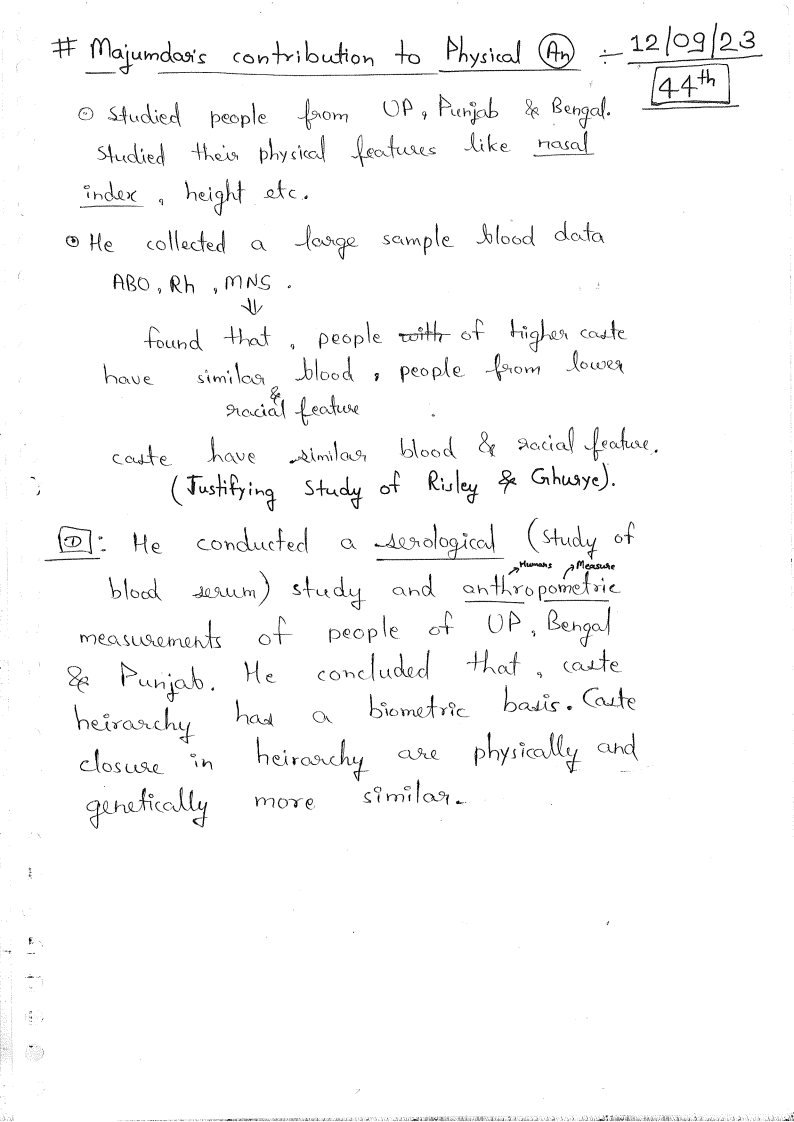 # Majumdar's contribution to Physical An ÷ 12/09/23
44th
⊙ Studied people from UP, Punjab & Bengal.
Studied their physical features like nasal
index, height etc.
⊙ He collected a large sample blood data
ABO, Rh, MNS.
⇓
found that, people with of higher caste
have similar blood, people from lower
&
racial feature
caste have similar blood & racial feature.
(Justifying Study of Risley & Ghurye).
D: He conducted a serological (study of
→Humans →Measure
blood serum) study and anthropometric
measurements of people of UP, Bengal
& Punjab. He concluded that, caste
heirarchy has a biometric basis. Caste
closure in heirarchy are physically and
genetically more similar.